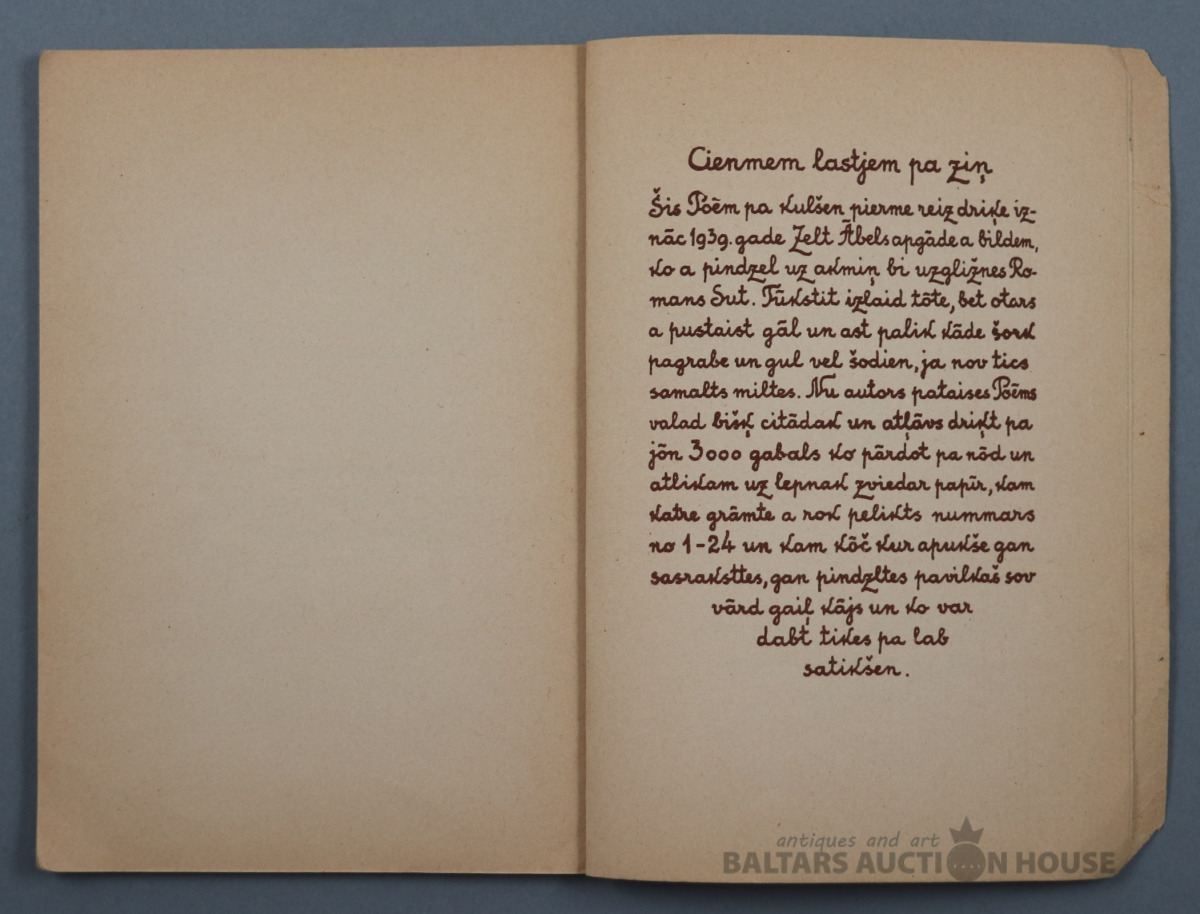 Cienmem lastjem pa ziņ
Šis Poēm pa kulšen pierme reiz driķe iz-
nāc 1939. gade Zelt Ābels apgāde a bildem,
ko a pindzel uz akmiņ bi uzgližņes Ro-
mans Sut. Tūkstit izlaid tōte, bet otars
a pustaist gāl un ast palik kāde šork
pagrabe un gul vel šodien, ja nov tics
samalts miltes. Nu autors pataises Poēms
valad bišķ citādak un atļāvs driķt pa
jōn 3000 gabals ko pārdot pa nōd un
atlikam uz lepnak zviedar papīr, kam
katre grāmte a rok pelikts nummars
no 1-24 un kam kōč kur apukše gan
sasraksttes, gan pindzltes pavilkaš sov
vārd gaiļ kājs un ko var
dabt tikes pa lab
satikšen.
antiques and art
BALTARS AUCTION HOUSE